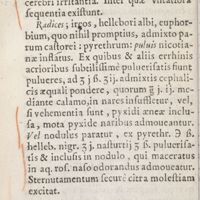 cerebri irritantia. Inter quæ vſitatiora
ſequentia exiſtunt.
Radices; ireos, hellebori albi, euphor-
bium, quo nihil promptius, admixto pa-
rum caſtorei: pyrethrum: puluis nicotia-
næ inflatus. Ex quibus & aliis errhinis
acrioribus ſubtiliſſimè pulueriſatis ſunt
pulueres, ad ʒ j ß. ʒij. admixtis cephali-
cis æquali pondere, quorum ʒ j. ij. me-
diante calamo, in nares inſufflétur, vel,
ſi vehementia ſunt, pyxidi æneæ inclu-
ſa, mota pyxide naribus admoueantur.
Vel nodulus paratur, ex pyrethr. ℈ ß.
helleb. nigr. ʒ j. naſturtij ʒ ß. pulueriſa-
tis & incluſis in nodulo, qui maceratus
in aq. roſ. naſo odorandus admoueatur.
Sternutamentum ſecurè citra moleſtiam
excitat.